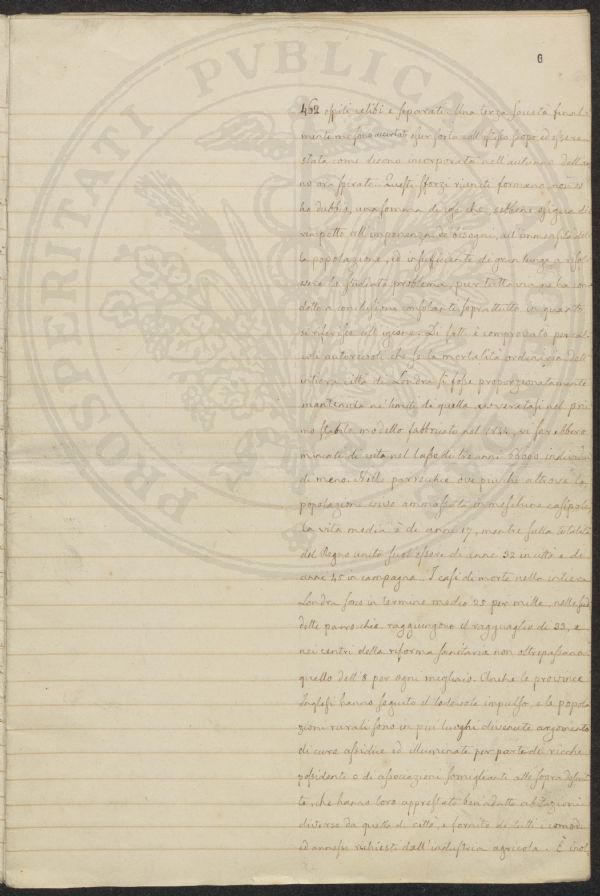 6
462 ospiti celibi e separati. Una terza società final-
mente mi fu accertato esser sorta coll'istesso scopo ed essere
stata come dicono incorporata nell'autunno dell'an
no ora spirato. Questi sforzi riuniti formano, non vi
ha dubbio, una somma di che, sebbene esigua di
rimpetto all'imponenza de bisogni, all'immensità del
la popolazione, ed insufficiente di gran lunga a risol
vere lo studiato problema, pur tuttavia ne ha con
dotto a conclusioni consolanti soprattutto in quanto
si riferisce all'igiene. Di fatti è comprovato per cal
coli autorevoli che se la mortalità ordinaria dell'
intiera città di Londra si fosse proporzionatamente
mantenuta ne' limiti di quella avveratasi nel pri
mo stabile modello fabbricato nel 1844, vi sarebbero
mancati di vita nel lasso di tre anni 23000 individui
di meno. Nelle parrocchie ove più che altrove la
popolazione vive ammassata in meschine casipole,
la vita media è de anni 17, mentre sulla totalità
del Regno unito suol essere di anni 32 in città e de
anni 45 in campagna. I casi di morte nella intiera
Londra sono in termine medio 25 per mille, nelle sud
dette parrocchie raggiungono il ragguaglio di 33, e
nei centri della riforma sanitaria non oltrepassano
quello dell'8 per ogni migliaio. Anche le province
Inglesi hanno seguito il lodevole impulso, e le popola
zioni rurali sono in più luoghi divenute argomento
di cure assidue ed illuminate per parte di ricche
possidenti o di associazioni somiglianti alle sopra
te, che hanno loro apprestato ben adatte abitazioni
diverse da quelle di città, e fornite di tutti i comodi
ed annessi richiesti dall'industria agricola. È inol
PROSPERITATI PVBLICAE